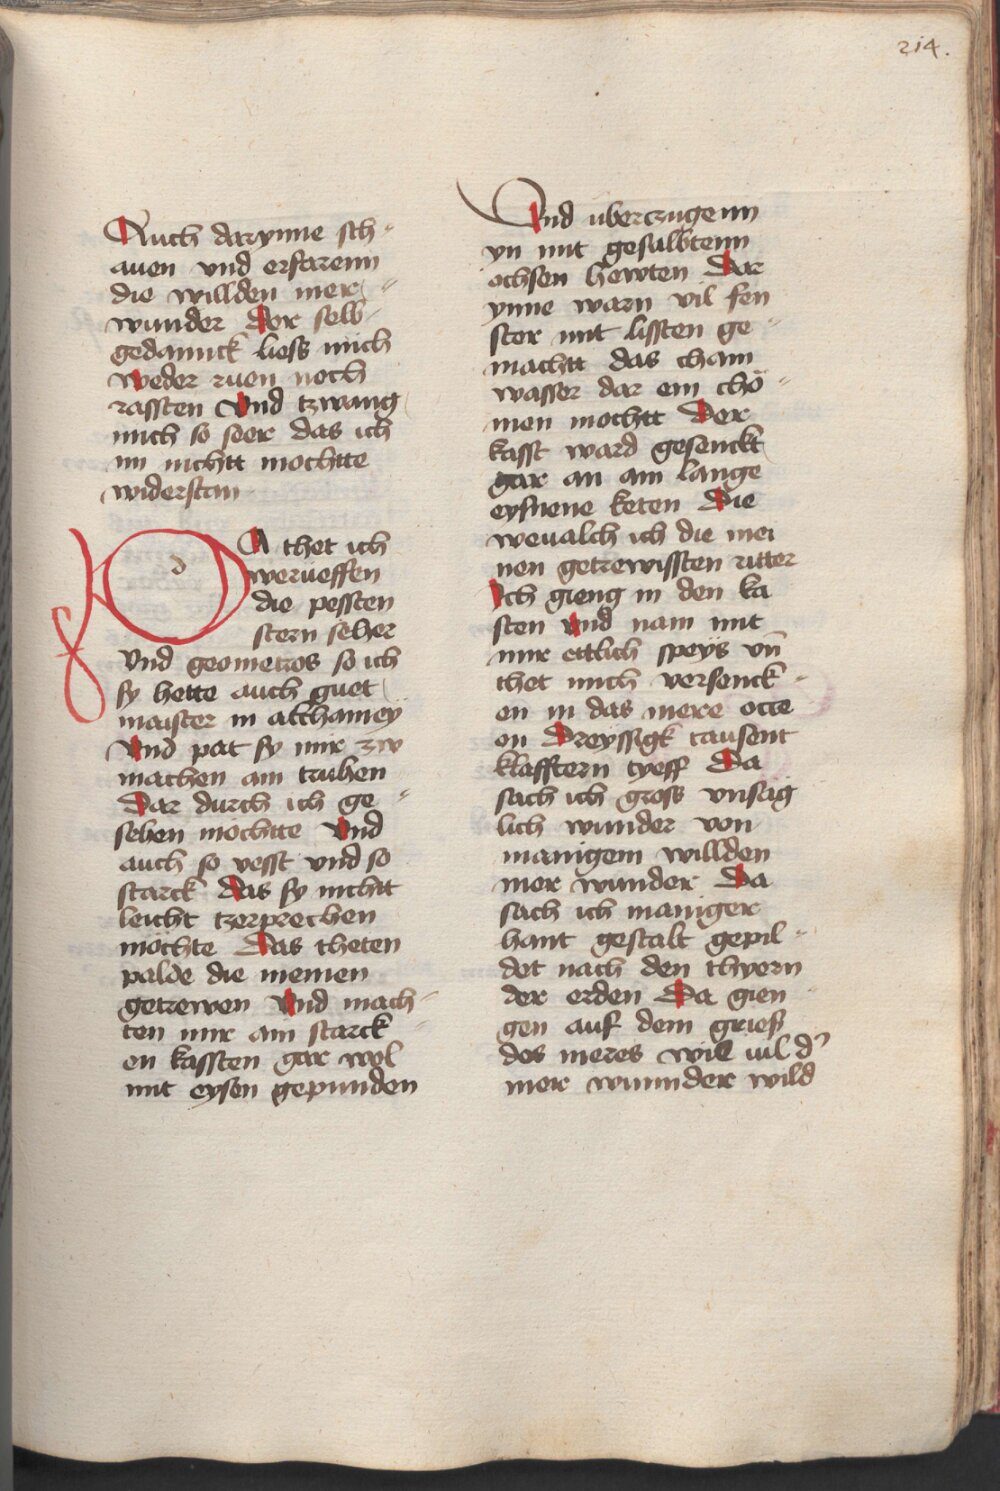 214.
Auch darynne sch-
auen vnd erfarenn
die willden mer-
wunder Der selb
gedannck liess mich
weder ruen noch
rassten Vnd tzwang
mich so seer das ich
im nichtt mochtte
widerstan
DA thet ich
werueffen
die pessten
stern seher
Vnd geometros so ich
sy hette auch guet
maister in alchamey
Vnd pat sy mir zw
machen ain truhen
Dar durch ich ge-
sehen mochtte Vnd
auch so vesst vnd so
starck das sy nichtt
leicht tzerprechen
möchte Das theten
palde die meinen
getrewen Vnd mach-
ten mir ain starck-
en kassten gar wol
mit eysen gepunden
Vnd uberczugenn
yn mit gesalbtenn
ochsen hewten Dar
ynne warn vil fen
ster mit lissten ge-
machtt das chain
wasser dar ein chö-
men mochtt Der
kasst ward gesenckt
gar an ain lange
eysnene keten Die
beualch ich die mei
nen getrewissten ritter
Ich gieng in den ka
sten Vnd nam mit
mir ettlich speys vn̄
thet mich versenck-
en in das mere otte
on Dreyssigk tausent
klafftern tyeff Da
sach ich gross vnsäg
lich wunder von
manigem willden
mer wunder Da
sach ich maniger
hant gestalt gepil-
det nach den thyern
der erden Da gien
gen auf dem griess
des meres wie vil d'
mer wunder wild